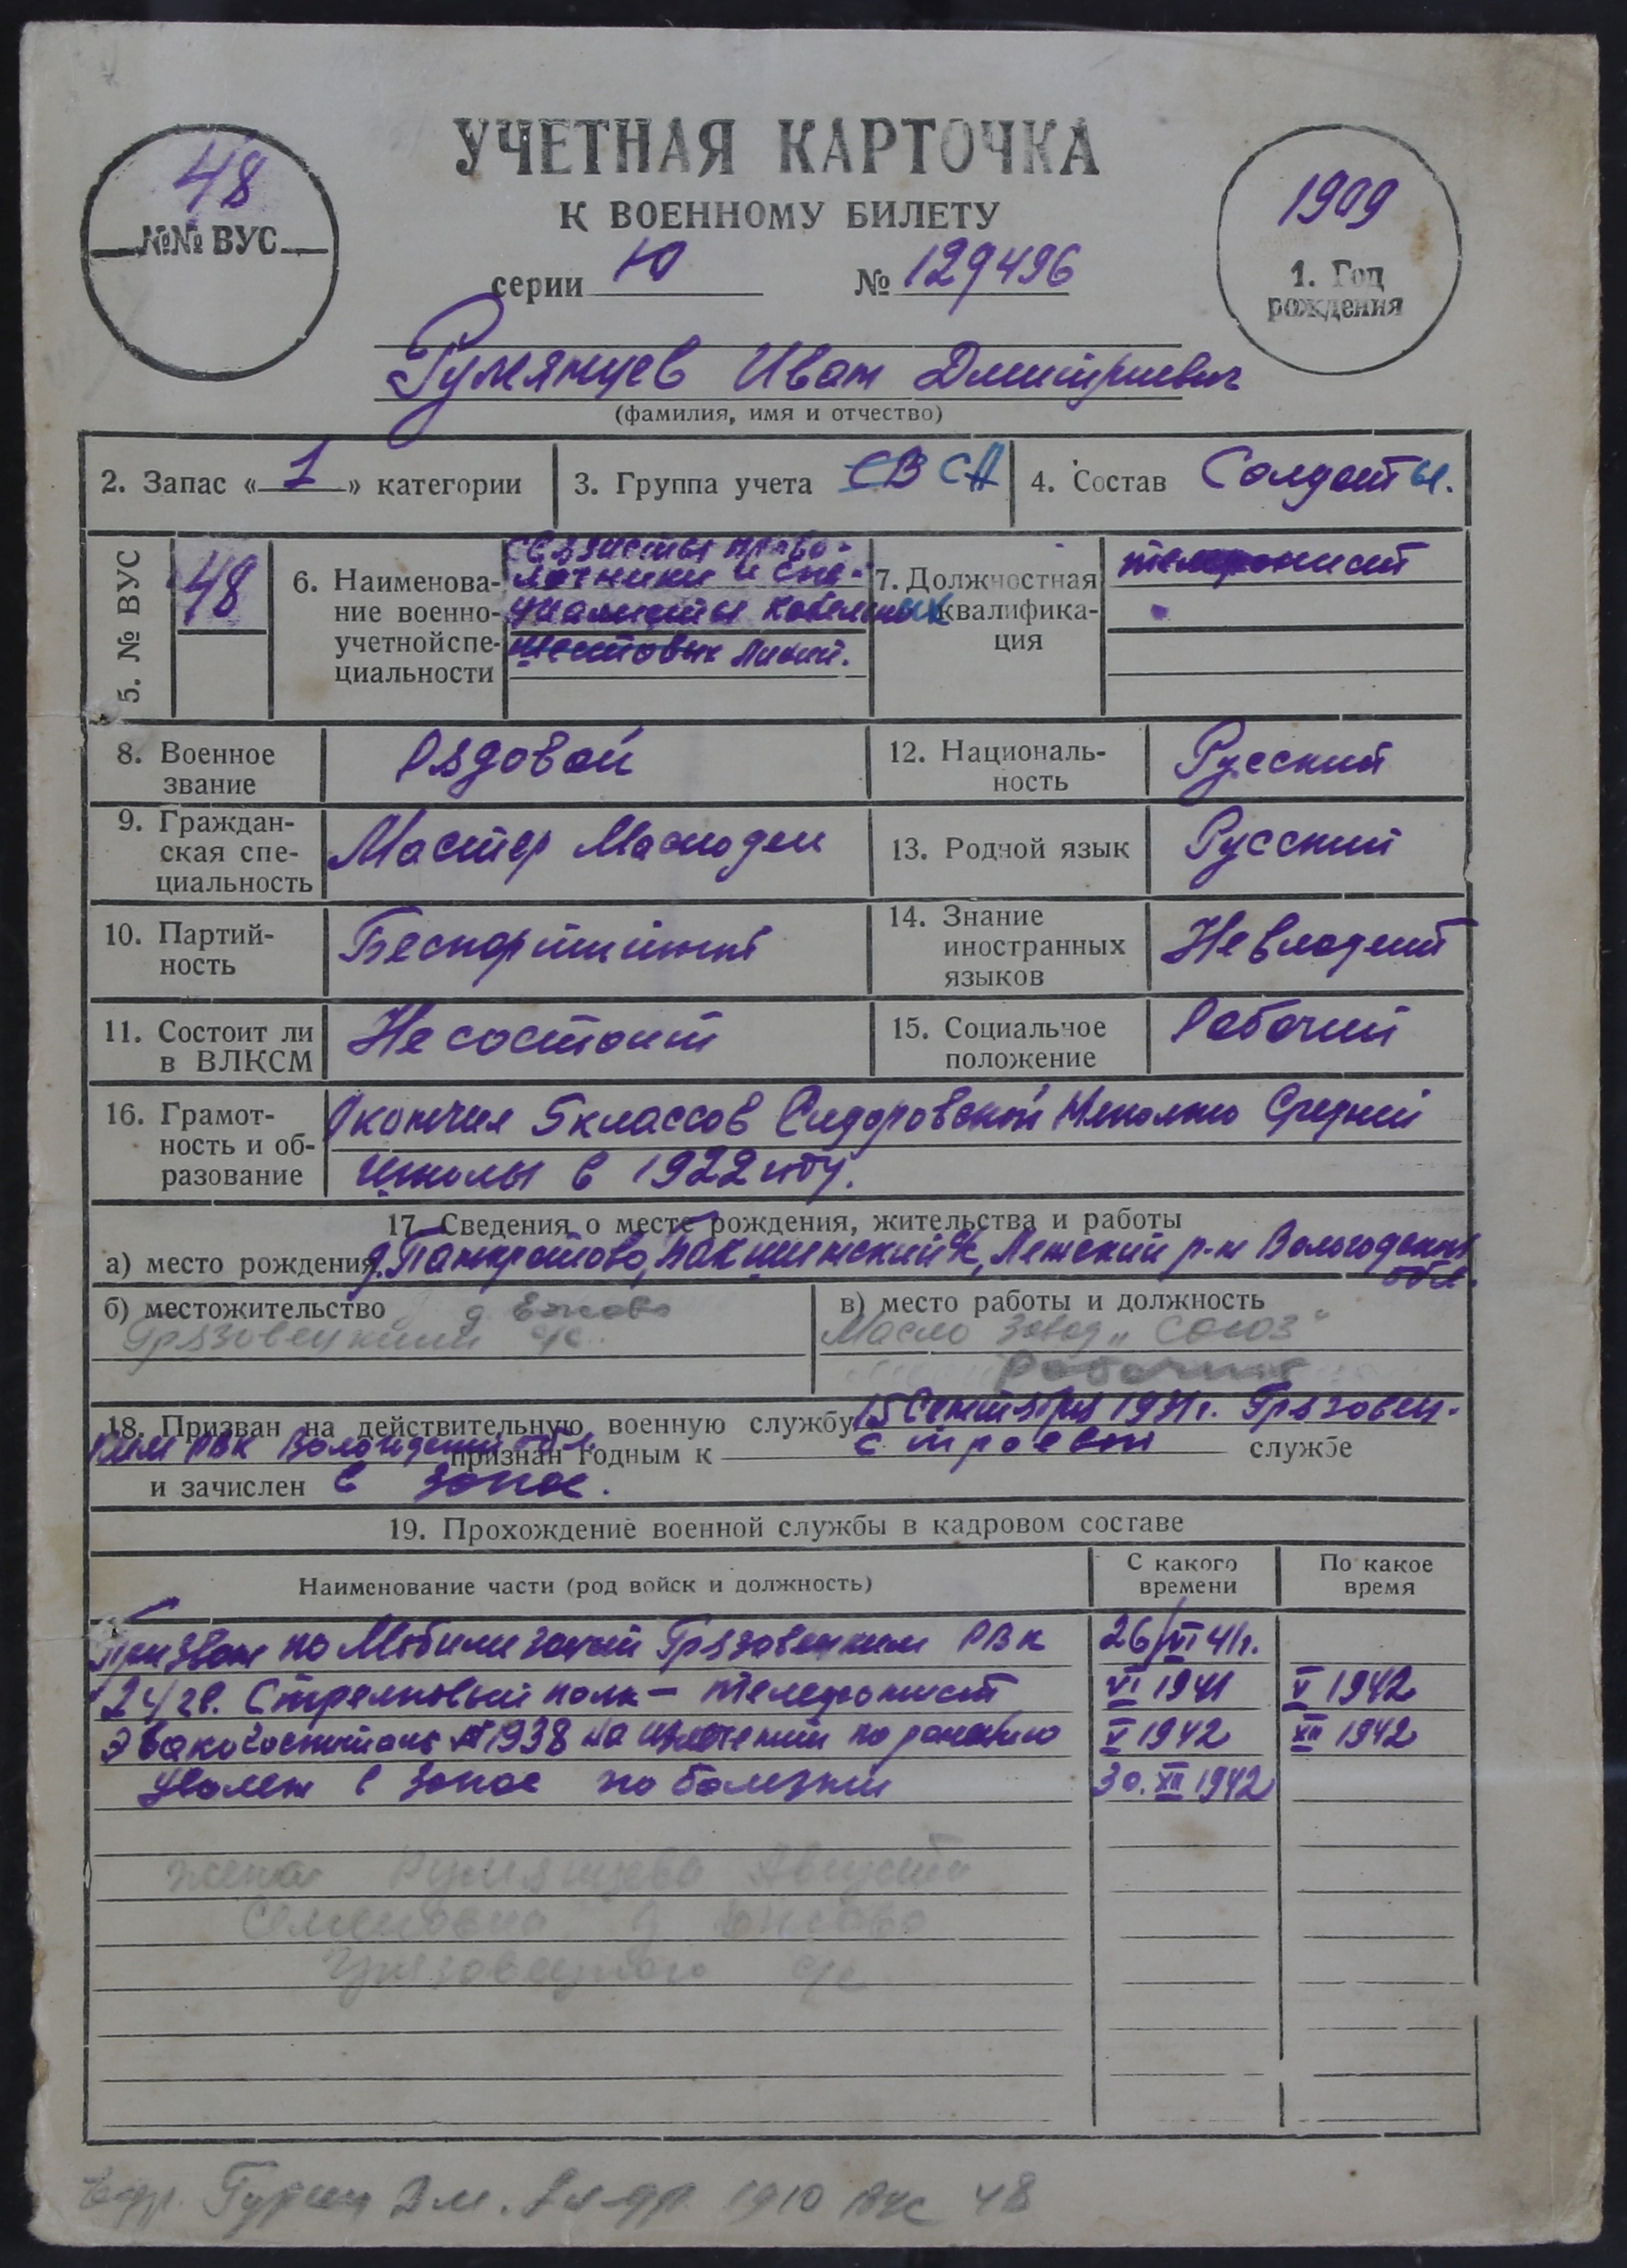 УЧЕТНАЯ КАРТОЧКА
К ВОЕННОМУ БИЛЕТУ
48
№№ ВУС
1909
1. Год
рождения
серии Ю № 129496
Румянцев Иван Дмитриевич
(фамилия, имя и отчество)
2. Запас « 1 » категории
3. Группа учета СВ СА
4. Состав Солдаты.
5. № ВУС
48
6. Наименова-
ние военно-
учетной спе-
циальности
Связисты прово-
лочники и спе-
циалисты кабельных
шестовых линий.
7. Должностная
квалифика-
ция
телефонист
8. Военное
звание
Рядовой
12. Националь-
ность
Русский
9. Граждан-
ская спе-
циальность
Мастер Маслодел
13. Родной язык
Русский
10. Партий-
ность
Беспартийный
14. Знание
иностранных
языков
Не владеет
11. Состоит ли
в ВЛКСМ
Не состоит
15. Социальное
положение
Рабочий
16. Грамот-
ность и об-
разование
Окончил 5 классов Сидоровской Неполно Средней
школы в 1922 году.
17. Сведения о месте рождения, жительства и работы
а) место рождения д. Панкратово, с/с, Лежский р-н Вологодской
обл.
б) местожительство д
Грязовецкий с/с.
в) место работы и должность
Масло завод „Союз"
Рабочий
18. Призван на действительную военную службу 15 Сентября 1931г. Грязовец-
ким РВК Вологодской обл. признан годным к строевой службе
и зачислен в запас.
19. Прохождение военной службы в кадровом составе
Наименование части (род войск и должность)
С какого
времени
По какое
время
Призван по Мобилизации Грязовецким РВК 26/VI 41г.
24 гв. Стрелковый полк – телефонист VI 1941 V 1942
Эвакогоспиталь №1938 на излечении по ранению V 1942 XII 1942
Уволен в запас по болезни 30. XII 1942
жена Румянцева Августа
Семеновна д
Грязовецкого с/с
1910 48